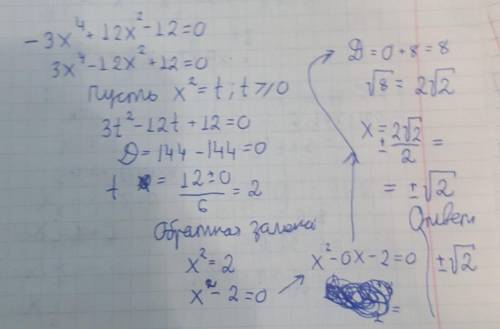 -3x⁴+12x²-12=0
3x⁴-12x²+12=0
Пусть x²=t; t⩾0
3t²-12t+12=0
D=144-144=0
t = 12±0/6 = 2
Обратная замена
x²=2
x²-2=0 → x²-0x-2=0
D=0+8=8
√8=2√2
x=±2√2/2=
=±√2
Ответ
±√2